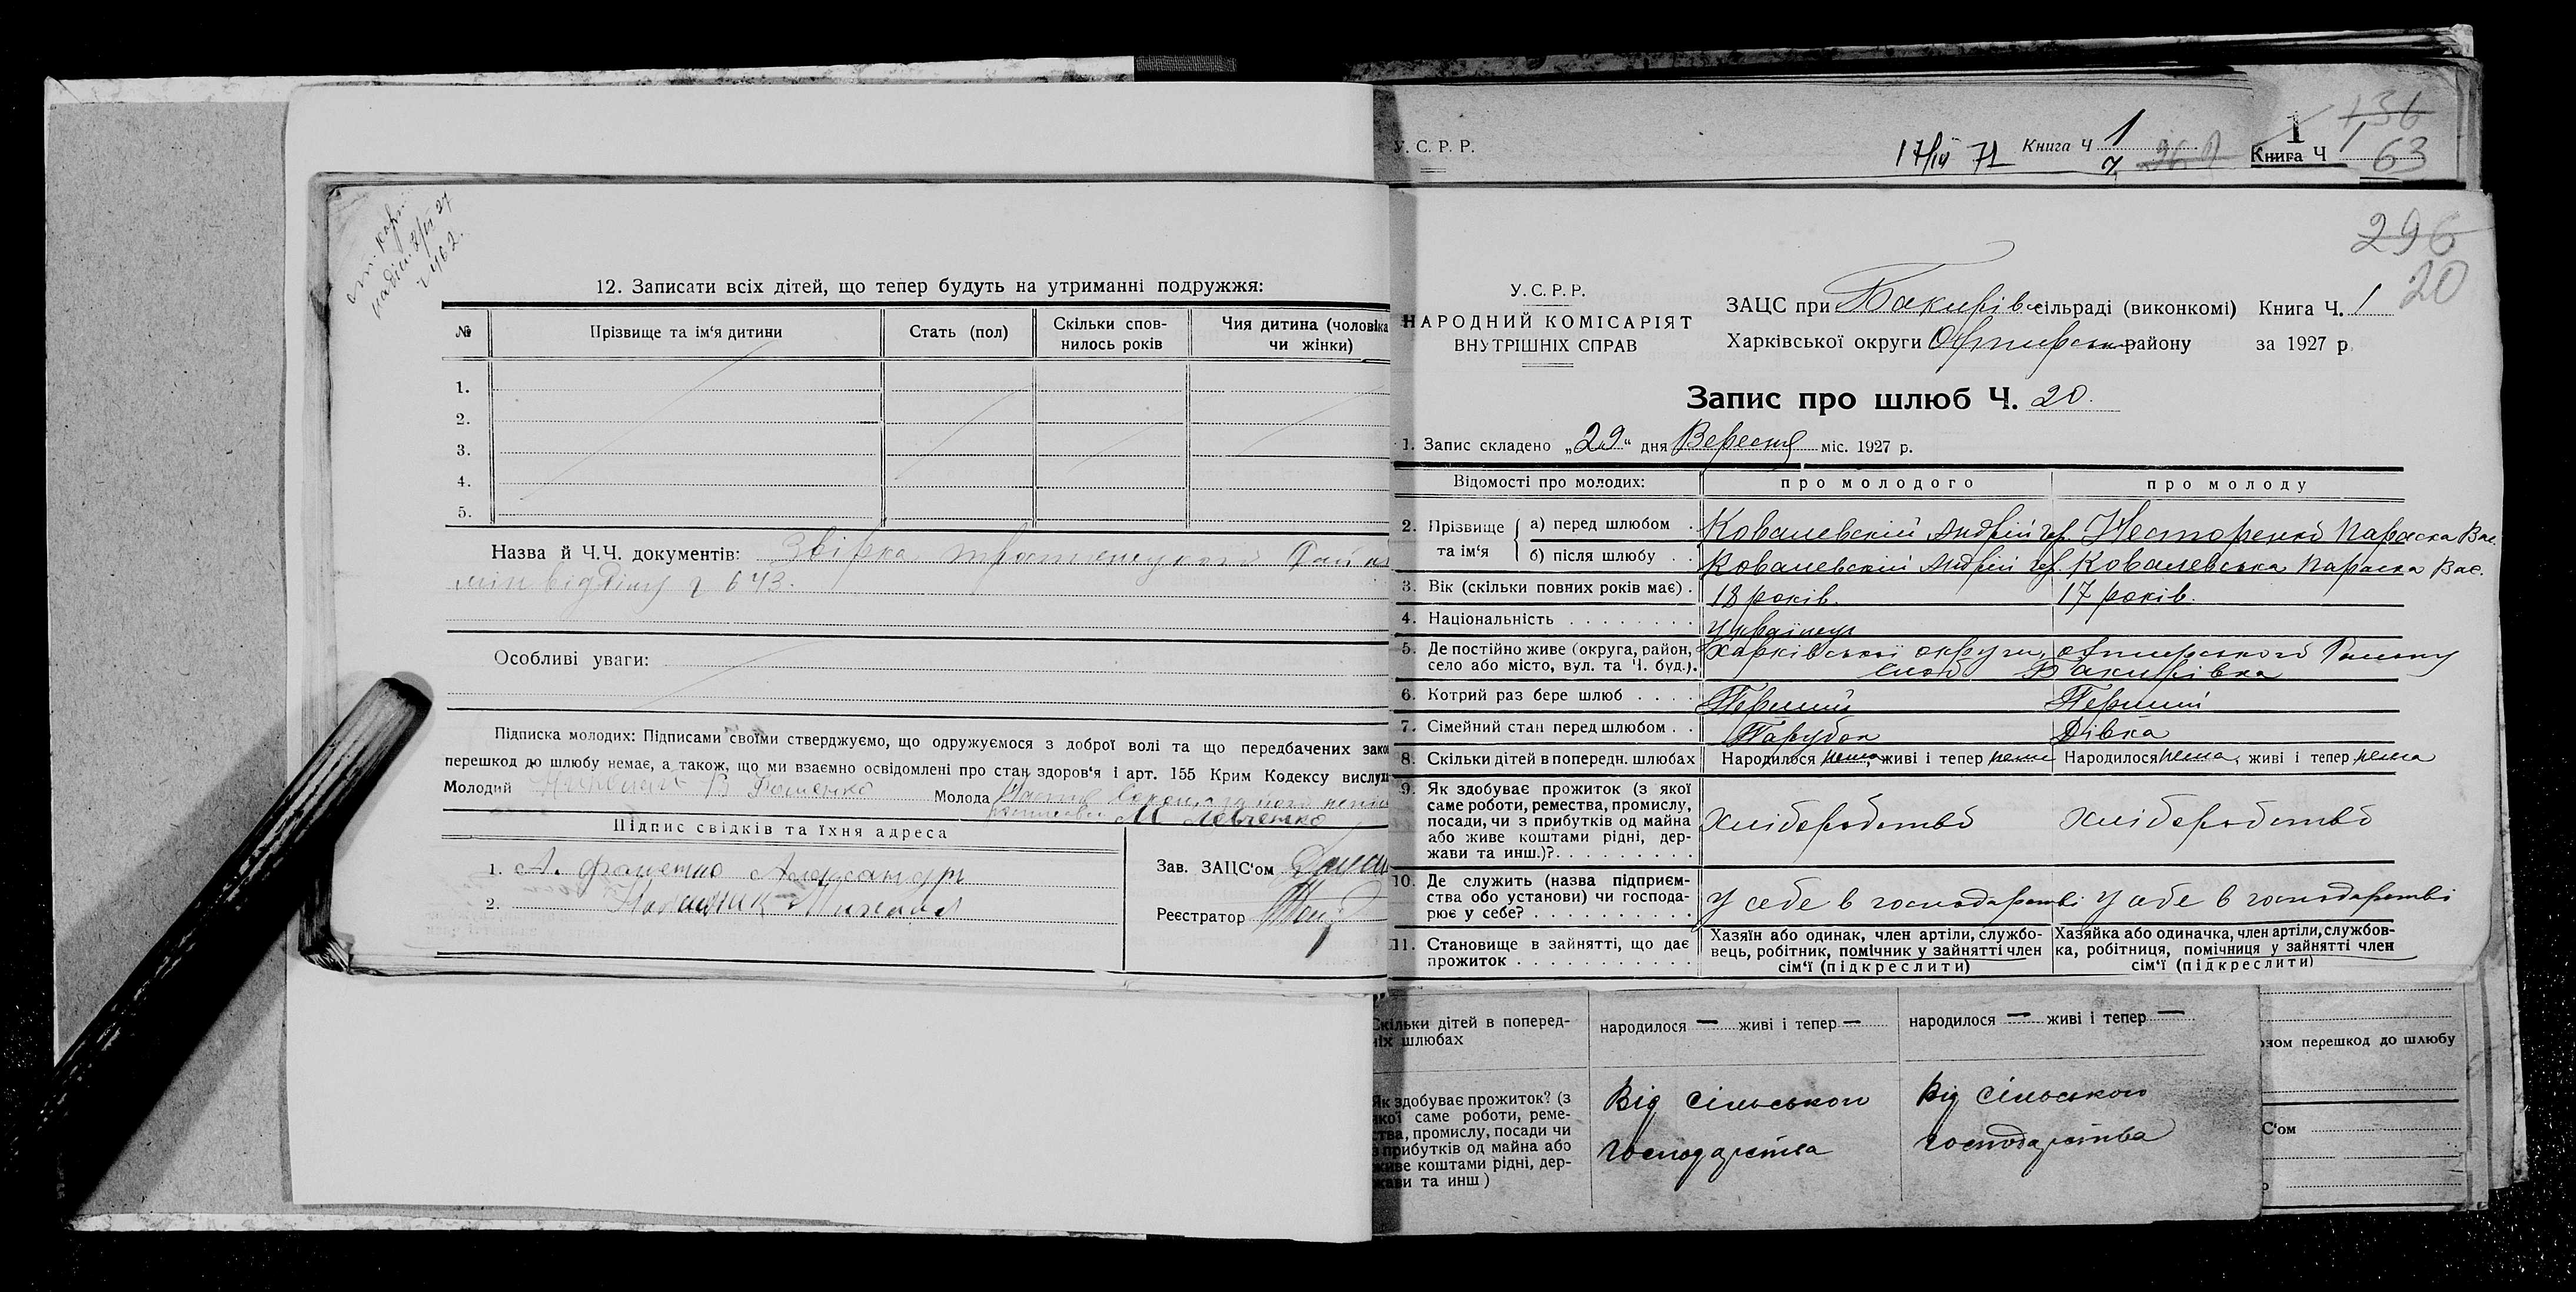 12. Записати всіх дітей, що тепер будуть на утриманні подружжя:
№ Прізвище та ім'я дитини Стать (пол) Скільки спов-нилось років Чия дитина (чоловіка чи жінки)
1.
2.
3.
4.
5.
Назва й Ч.Ч. документів: Звірка
відділу 643.
Особливі уваги:
Підписка молодих: Підписами своїми стверджуємо, що одружуємося з доброї волі та що передбачених зако
перешкод до шлюбу немає, а також, що ми взаємно освідомлені про стан здоров'я і арт. 155 Крим Кодексу вислу
Молодий Молода
М Левченко
Підпис свідків та їхня адреса
1. А.
2. Михаил
Зав. ЗАЦС'ом
Реєстратор
У. С. Р. Р.
17/IV 71 Книга Ч 1
136
1 Книга Ч 1
63
296
20
У. С. Р. Р.
НАРОДНИЙ КОМІСАРІЯТ
ВНУТРІШНІХ СПРАВ
ЗАЦС при Бакирів сільраді (виконкомі) Книга Ч. 1
Харківської округи Охтирськ району за 1927 р
Запис про шлюб Ч. 20.
1. Запис складено „29" дня Вересня міс. 1927 р.
Відомості про молодих: про молодого про молоду
2. Прізвище та ім'я а) перед шлюбом . Ковалевский Андрій Несторенко Параска Вас.
б) після шлюбу . Ковалевский Андрій Ковалевська Параска Вас.
3. Вік (скільки повних років має) . 18 років. 17 років.
4. Національність . . . . . . . . українці
5. Де постійно живе (округа, район, село або місто, вул. та Ч. буд.). Харківської округи, охтирського Району
слоб Бакирівка
6. Котрий раз бере шлюб . . . . Перший Перший
7. Сімейний стан перед шлюбом . . Парубок Дівка
8. Скільки дітей в попередн. шлюбах Народилося нема, живі і тепер нема Народилося нема, живі і тепер нема
9. Як здобуває прожиток (з якої
саме роботи, ремества, промислу,
посади, чи з прибутків од майна
або живе коштами рідні, дер-
жави та инш.)?. . . . . . . . . Хліборобство Хліборобство
10. Де служить (назва підприєм-
ства або установи) чи господа-
рює у себе? . . . . . . . . . . У себе в господарстві У себе в господарстві
11. Становище в зайнятті, що дає
прожиток . . . . . . . . . . . .
Хазяїн або одинак, член артілі, службо-
вець, робітник, помічник у зайнятті член
сім'ї (підкреслити)
Хазяйка або одиначка, член артілі, службов-
ка, робітниця, помічниця у зайнятті член
сім'ї (підкреслити)
Скільки дітей в поперед-
ніх шлюбах
народилося — живі і тепер — народилося — живі і тепер —
Як здобуває прожиток? (з
якої саме роботи, реме-
ства, промислу, посади чи
з прибутків од майна або
живе коштами рідні, дер-
жави та инш )
Від сільського
господарства
Від сільського
господарства
ном перешкод до шлюбу
С'ом